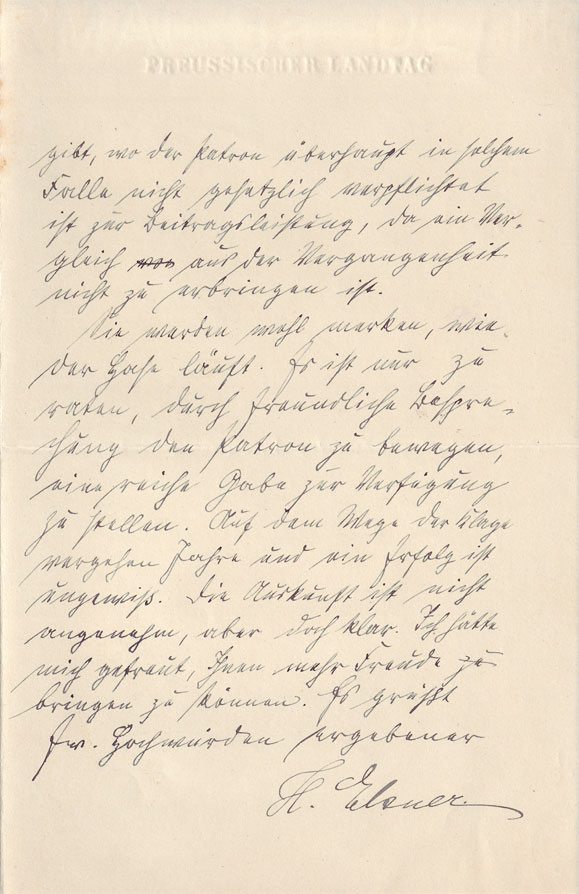 PREUSSISCHER LANDTAG
gibt, wo der Patron überhaupt in solchem
Falle nicht gesetzlich verpflichtet
ist zur Beitragsleistung, da ein Ver-
gleich von aus der Vergangenheit
nicht zu erbringen ist.
Sie werden wohl merken, wie
der Hase läuft. Es ist nur zu
raten, durch freundliche Bespre-
chung den Patron zu bewegen,
eine reiche Gabe zur Verfügung
zu stellen. Auf dem Wege der Klage
vergehen Jahre und ein Erfolg ist
ungewiß. Die Auskunft ist nicht
angenehm, aber doch klar. Ich hätte
mich gefreut, Ihnen mehr Freude zu
bringen zu können. Es grüßt
Ew. Hochwürden ergebener
H. Elsner.